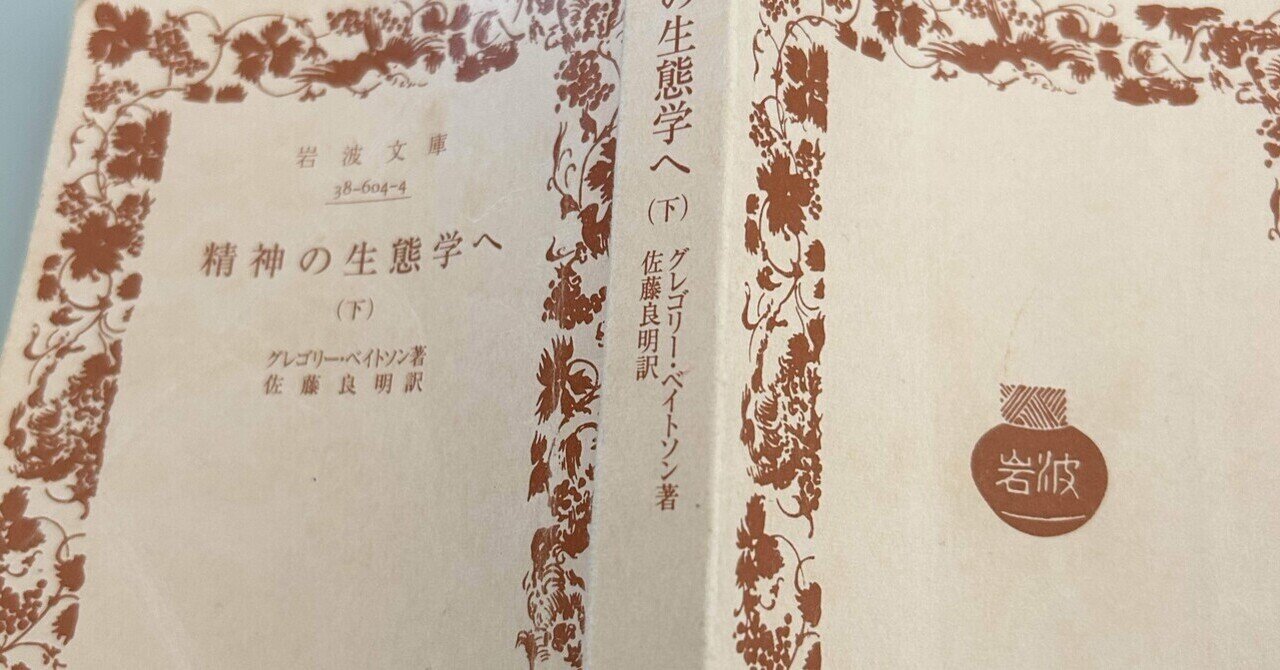 岩波文庫
38-604-4
精神の生態学へ
(下)
グレゴリー・ベイトソン著
佐藤良明訳
の生態学へ(下)
グレゴリー・ベイトソン著
佐藤良明訳
岩波